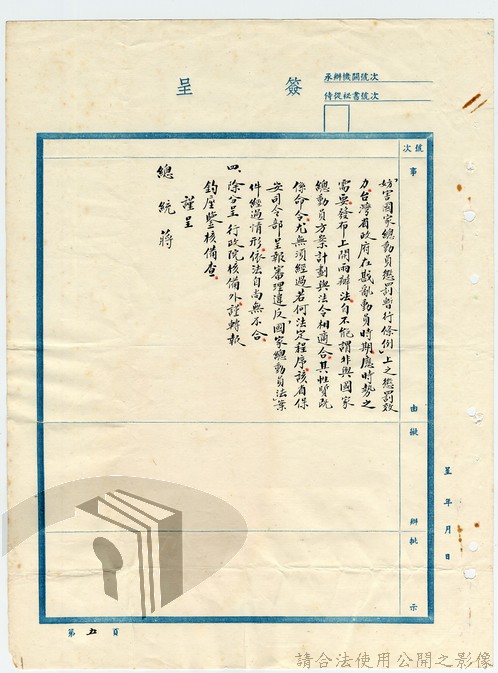 簽呈
承辦機關號次
侍從祕書號次
號次
事由
擬辦
批示
妨害國家總動員懲罰暫行條例」上之懲罰效
力台灣省政府在戡亂動員時期應時勢之
需要發布上開兩辦法自不能謂非與國家
總動員方案計劃與法令相適合其性質既
係命令尤無須經過若何法定程序該省保
安司令部呈報審理違反「國家總動員法」案
件經過情形依法自尚無不合
四、除分呈行政院核備外謹轉報
鈞座鑒核備查
謹呈
總統蔣
呈 年 月 日
第五頁
請合法使用公開之影像